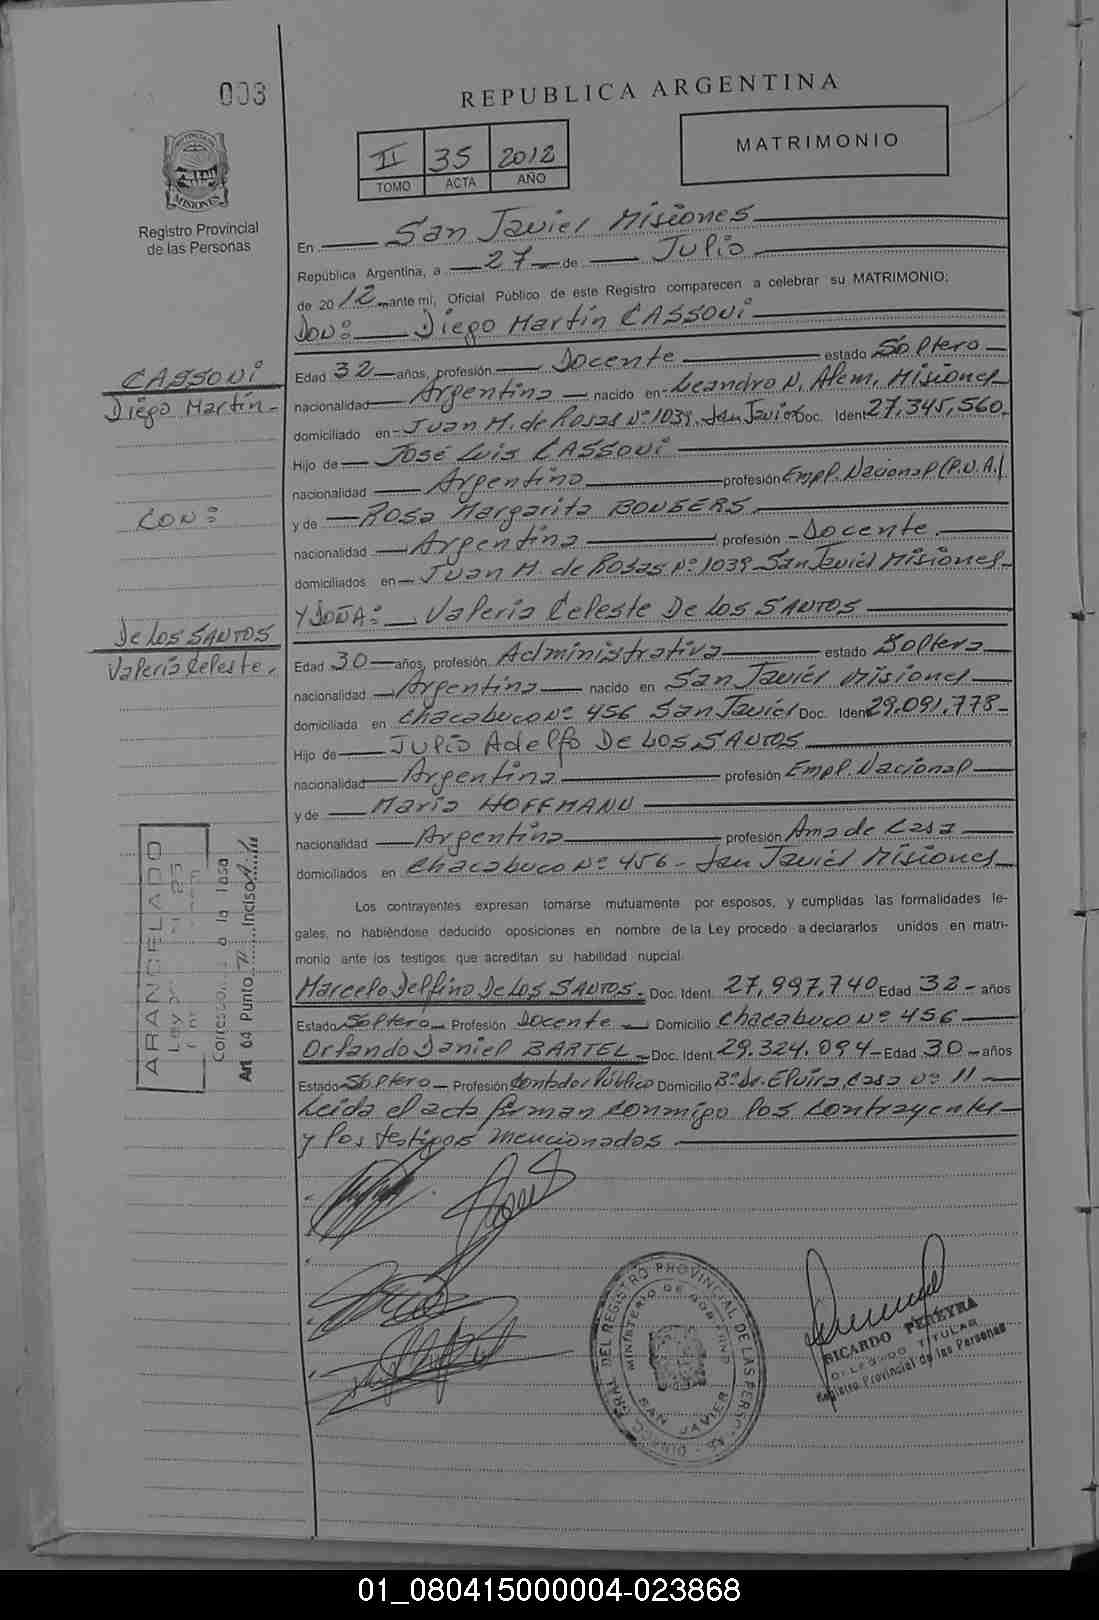 003
REPUBLICA ARGENTINA
II 35 2012
TOMO ACTA AÑO
MATRIMONIO
PROVINCIA DE
MISIONES
Registro Provincial
de las Personas
En San Javier Misiones
República Argentina, a 27 de Julio
de 2012 ante mí, Oficial Público de este Registro comparecen a celebrar su MATRIMONIO;
DON: Diego Martín CASSONI
Edad 32 años, profesión Docente estado Soltero
nacionalidad Argentina nacido en Leandro N. Alem, Misiones
domiciliado en Juan M. de Rosas Nº 1039. San Javier Doc. Ident 27.345.560
Hijo de José Luis CASSONI
nacionalidad Argentino profesión Empl. Nacional (P.N.A.)
y de Rosa Margarita BONGERS
nacionalidad Argentina profesión Docente
domiciliados en Juan M. de Rosas Nº 1039 San Javier Misiones
Y DOÑA: Valeria Celeste De los SANTOS
Edad 30 años, profesión Administrativa estado Soltera
nacionalidad Argentina nacido en San Javier Misiones
domiciliada en Chacabuco Nº 456 San Javier Doc. Ident 29.091.778
Hijo de Julio Adelfo De los SANTOS
nacionalidad Argentina profesión Empl. Nacional
y de María HOFFMANN
nacionalidad Argentina profesión Ama de Casa
domiciliados en Chacabuco Nº 456 - San Javier Misiones
Los contrayentes expresan tomarse mutuamente por esposos, y cumplidas las formalidades le-
gales, no habiéndose deducido oposiciones en nombre de la Ley procedo a declararlos unidos en matri-
monio ante los testigos que acreditan su habilidad nupcial.
Marcelo Delfino De los SANTOS - Doc. Ident. 27,997,740 Edad 32 - años
Estado Soltero Profesión Docente Domicilio Chacabuco Nº 456
Orlando Daniel BARTEL Doc. Ident. 29.324.094 Edad 30 años
Estado Soltero Profesión Contador Público Domicilio Bº Dr. Elvira Casa Nº 11
Leída el acta firman conmigo los contrayentes
y los testigos mencionados
CASSONI
Diego Martín
CON:
De los SANTOS
Valeria Celeste
ARANCELADO
Ley
a la tasa
Art 64 Punto Inciso
DEL REGISTRO PROVINCIAL DE LAS PERS
MINISTERIO DE GOB
SAN JAVIER
RICARDO PEREYRA
DELEGADO TITULAR
Registro Provincial de las Personas
01_080415000004-023868